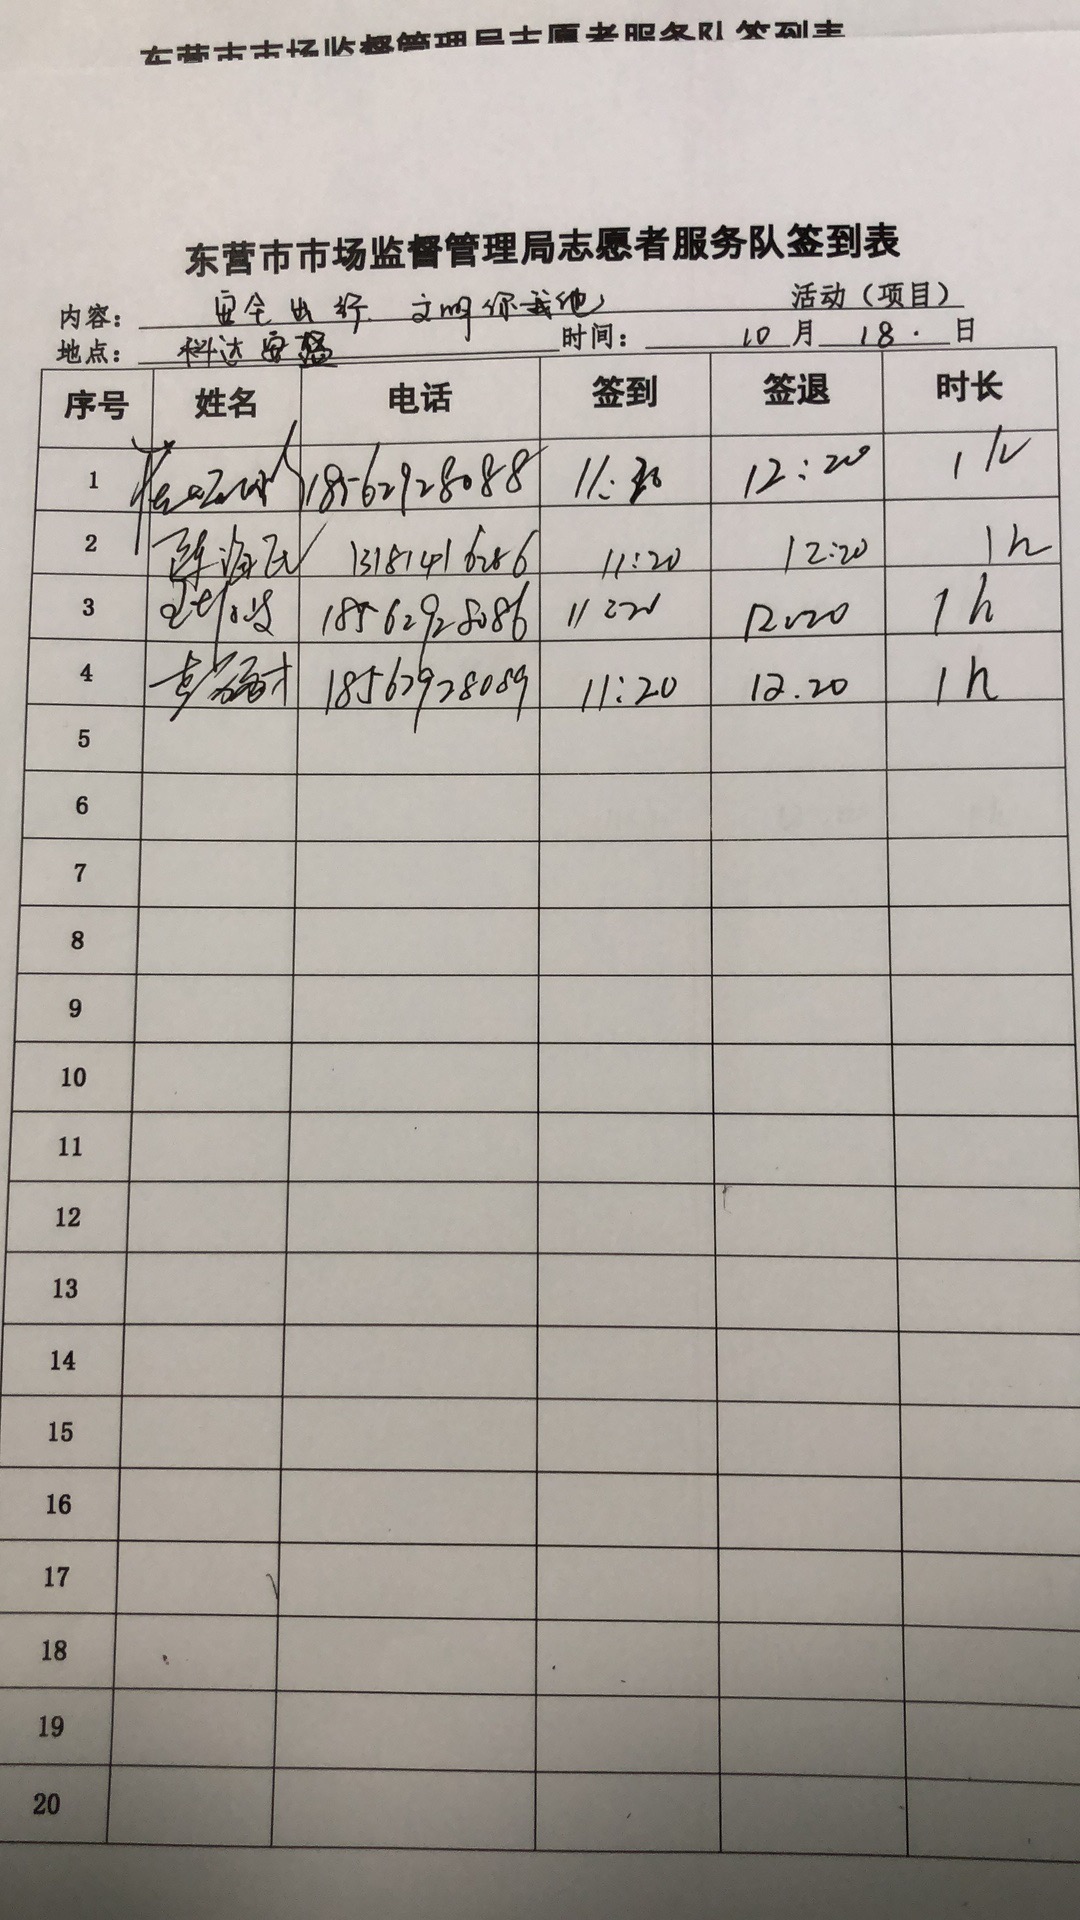 东营市市场监督管理局志愿者服务队签到表
东营市市场监督管理局志愿者服务队签到表
内容： 安全出行 文明你我他 活动（项目）
地点： 科达 时间： 10 月 18 日
序号 姓名 电话 签到 签退 时长
1 18562928088 11:20 12:20 1h
2 陈海民 13181416286 11:20 12:20 1h
3 18562928086 11:20 12:20 1h
4 18562928089 11:20 12.20 1h
5
6
7
8
9
10
11
12
13
14
15
16
17
18
19
20